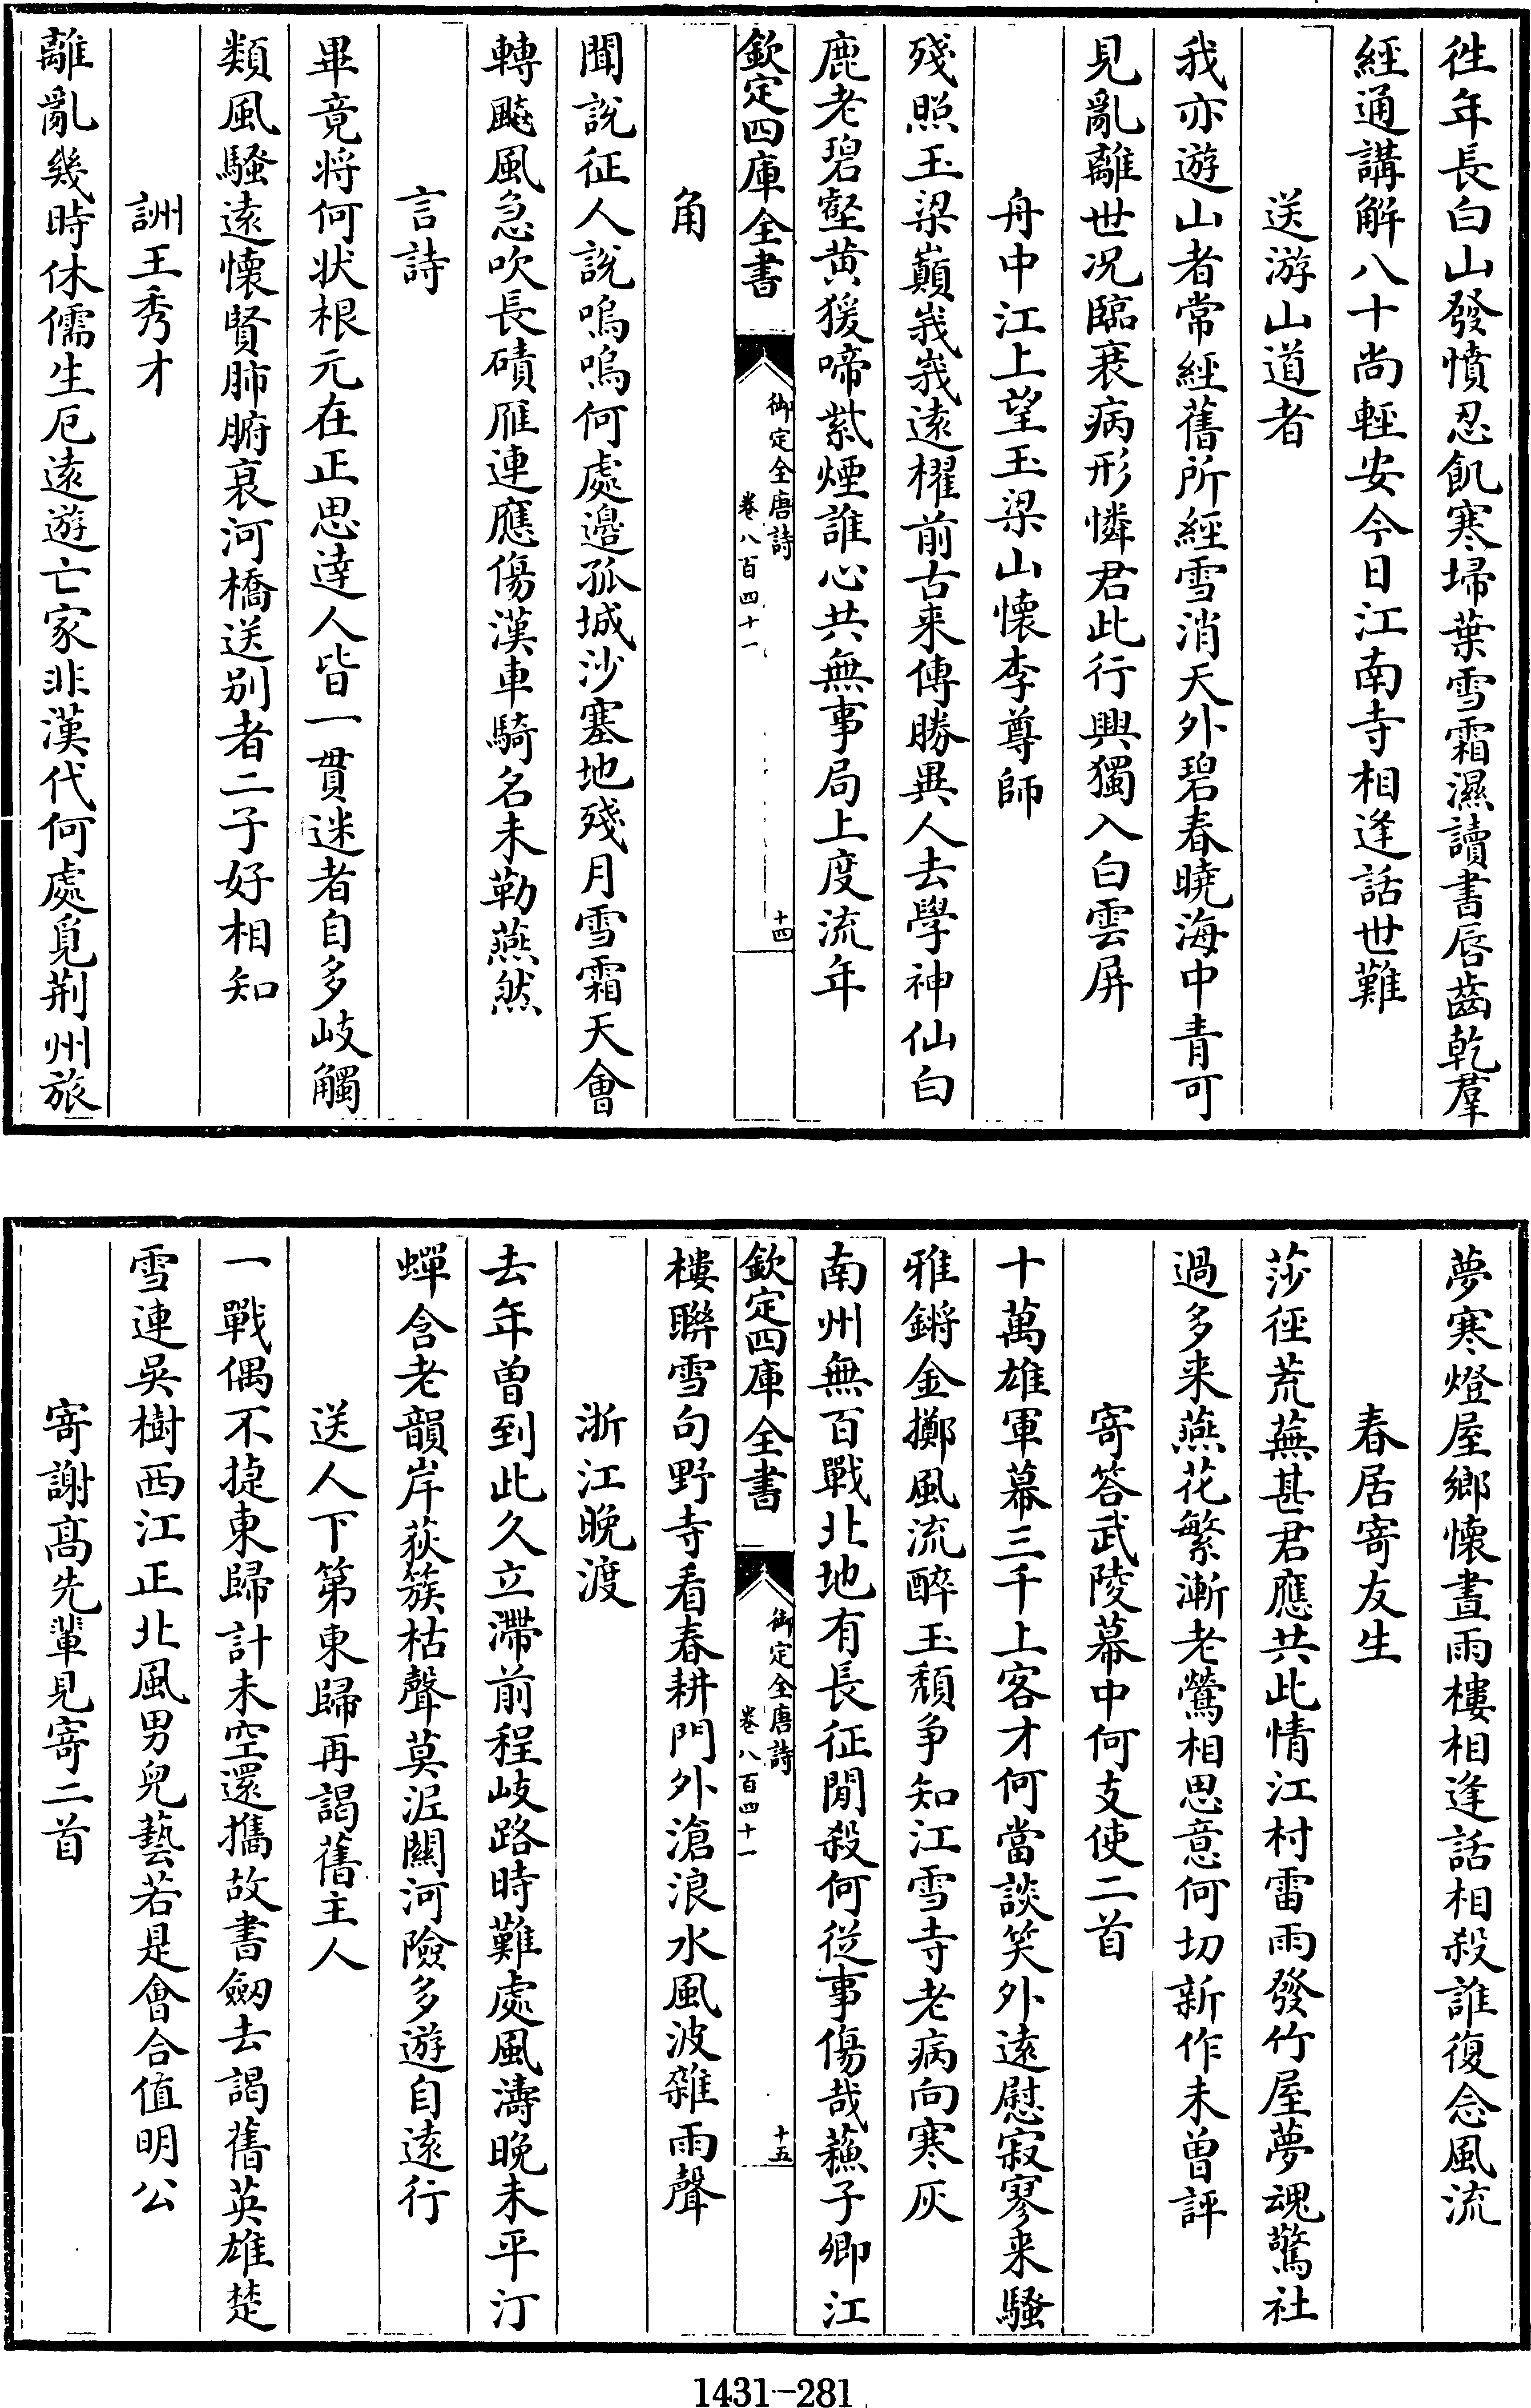 徃年長白山發憤忍飢寒埽葉雪霜濕讀書唇齒乾羣
經通講解八十尚輕安今日江南寺相逢話世難
送游山道者
我亦遊山者常經舊所經雪消天外碧春曉海中青可
見亂離世况臨衰病形憐君此行興獨入白雲屏
舟中江上望玉梁山懷李尊師
殘照玉梁巔峩峩遠櫂前古来傳勝異人去學神仙白
鹿老碧壑黄猨啼紫煙誰心共無事局上度流年
欽定四庫全書
御定全唐詩
卷八百四十一
十四
角
聞說征人說嗚嗚何處邉孤城沙塞地殘月雪霜天會
轉飈風急吹長磧雁連應傷漢車騎名未勒燕然
言詩
畢竟将何状根元在正思逹人皆一貫迷者自多岐觸
類風騷逺懷賢肺腑哀河橋送别者二子好相知
詶王秀才
離亂幾時休儒生厄逺遊亡家非漢代何處覓荆州旅
夢寒燈屋鄉懷晝雨樓相逢話相殺誰復念風流
春居寄友生
莎徑荒蕪甚君應共此情江村雷雨發竹屋夢魂驚社
過多来燕花繁漸老鶯相思意何切新作未曽評
寄答武陵幕中何支使二首
十萬雄軍幕三千上客才何當談笑外逺慰寂寥来騷
雅鏘金擲風流醉玉頹争知江雪寺老病向寒灰
南州無百戰北地有長征閒殺何從事傷哉蘓子卿江
樓聯雪句野寺看春耕門外滄浪水風波雜雨聲
欽定四庫全書
御定全唐詩
卷八百四十一
十五
浙江晚渡
去年曽到此久立滯前程岐路時難處風濤晚未平汀
蟬含老韻岸荻簇枯聲莫泥關河險多遊自逺行
送人下第東歸再謁舊主人
一戰偶不捷東歸計未空還攜故書劔去謁舊英雄楚
雪連吳樹西江正北風男兒藝若是會合值明公
寄謝髙先輩見寄二首
1431-281